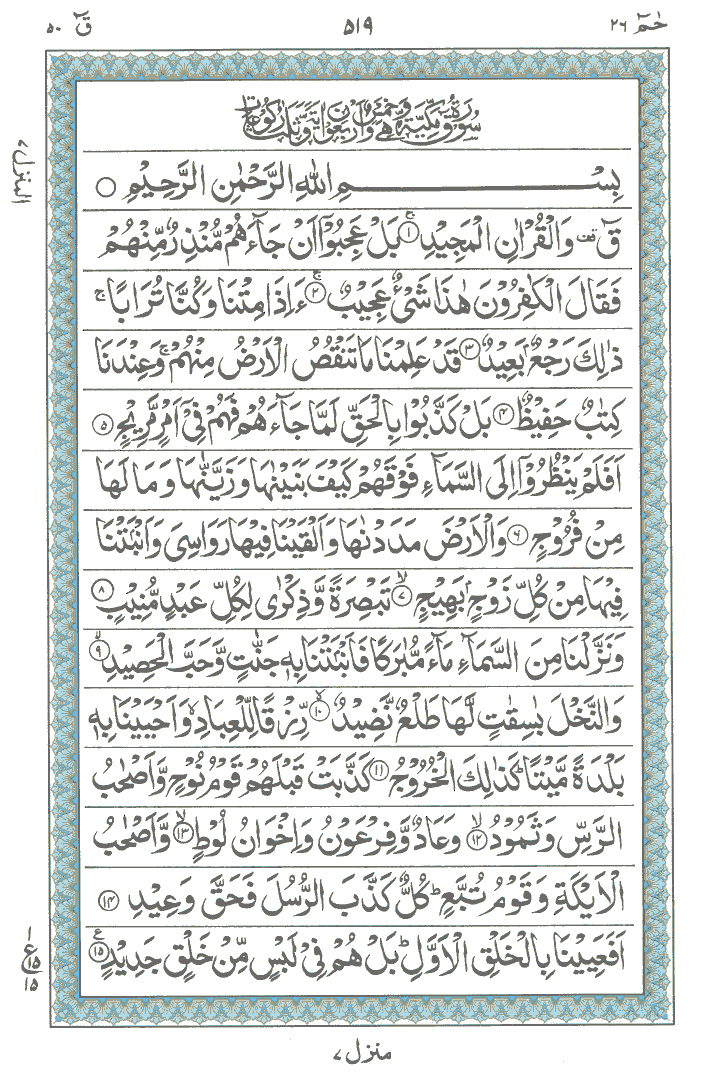 حٰمٓ ۲۶ ۵۱۹ قٓ ۵۰
سُوْرَةُ قٓ مَكِّيَّةٌ وَّهِیَ خَمْسٌ وَّاَرْبَعُوْنَ اٰيَةً وَّثَلٰثُ رُكُوْعَاتٍ
بِسْمِ اللّٰهِ الرَّحْمٰنِ الرَّحِيْمِ ○
قٓ ۚ قف وَالْقُرْاٰنِ الْمَجِيْدِ ۚ﴿۱﴾ بَلْ عَجِبُوْۤا اَنْ جَآءَهُمْ مُّنْذِرٌ مِّنْهُمْ
فَقَالَ الْكٰفِرُوْنَ هٰذَا شَیْءٌ عَجِيْبٌ ۚ﴿۲﴾ ءَاِذَا مِتْنَا وَكُنَّا تُرَابًا ۚ
ذٰلِكَ رَجْعٌۢ بَعِيْدٌ ﴿۳﴾ قَدْ عَلِمْنَا مَا تَنْقُصُ الْاَرْضُ مِنْهُمْ ۚ وَعِنْدَنَا
كِتٰبٌ حَفِيْظٌ ﴿۴﴾ بَلْ كَذَّبُوْا بِالْحَقِّ لَمَّا جَآءَهُمْ فَهُمْ فِیْۤ اَمْرٍ مَّرِيْجٍ ﴿۵﴾
اَفَلَمْ يَنْظُرُوْۤا اِلَی السَّمَآءِ فَوْقَهُمْ كَيْفَ بَنَيْنٰهَا وَزَيَّنّٰهَا وَمَا لَهَا
مِنْ فُرُوْجٍ ﴿۶﴾ وَالْاَرْضَ مَدَدْنٰهَا وَاَلْقَيْنَا فِيْهَا رَوَاسِیَ وَاَنْۢبَتْنَا
فِيْهَا مِنْ كُلِّ زَوْجٍۭ بَهِيْجٍ ۙ﴿۷﴾ تَبْصِرَةً وَّذِكْرٰی لِكُلِّ عَبْدٍ مُّنِيْبٍ ﴿۸﴾
وَنَزَّلْنَا مِنَ السَّمَآءِ مَآءً مُّبٰرَكًا فَاَنْۢبَتْنَا بِهٖ جَنّٰتٍ وَّحَبَّ الْحَصِيْدِ ۙ﴿۹﴾
وَالنَّخْلَ بٰسِقٰتٍ لَّهَا طَلْعٌ نَّضِيْدٌ ۙ﴿۱۰﴾ رِّزْقًا لِّلْعِبَادِ ۙ وَاَحْيَيْنَا بِهٖ
بَلْدَةً مَّيْتًا ؕ كَذٰلِكَ الْخُرُوْجُ ﴿۱۱﴾ كَذَّبَتْ قَبْلَهُمْ قَوْمُ نُوْحٍ وَّاَصْحٰبُ
الرَّسِّ وَثَمُوْدُ ۙ﴿۱۲﴾ وَعَادٌ وَّفِرْعَوْنُ وَاِخْوَانُ لُوْطٍ ۙ﴿۱۳﴾ وَّاَصْحٰبُ
الْاَيْكَةِ وَقَوْمُ تُبَّعٍ ؕ كُلٌّ كَذَّبَ الرُّسُلَ فَحَقَّ وَعِيْدِ ﴿۱۴﴾
اَفَعَيِيْنَا بِالْخَلْقِ الْاَوَّلِ ؕ بَلْ هُمْ فِیْ لَبْسٍ مِّنْ خَلْقٍ جَدِيْدٍ ﴿۱۵﴾
المنزل ۷
۱
ع ۱۵
۱۵
منزل ۷